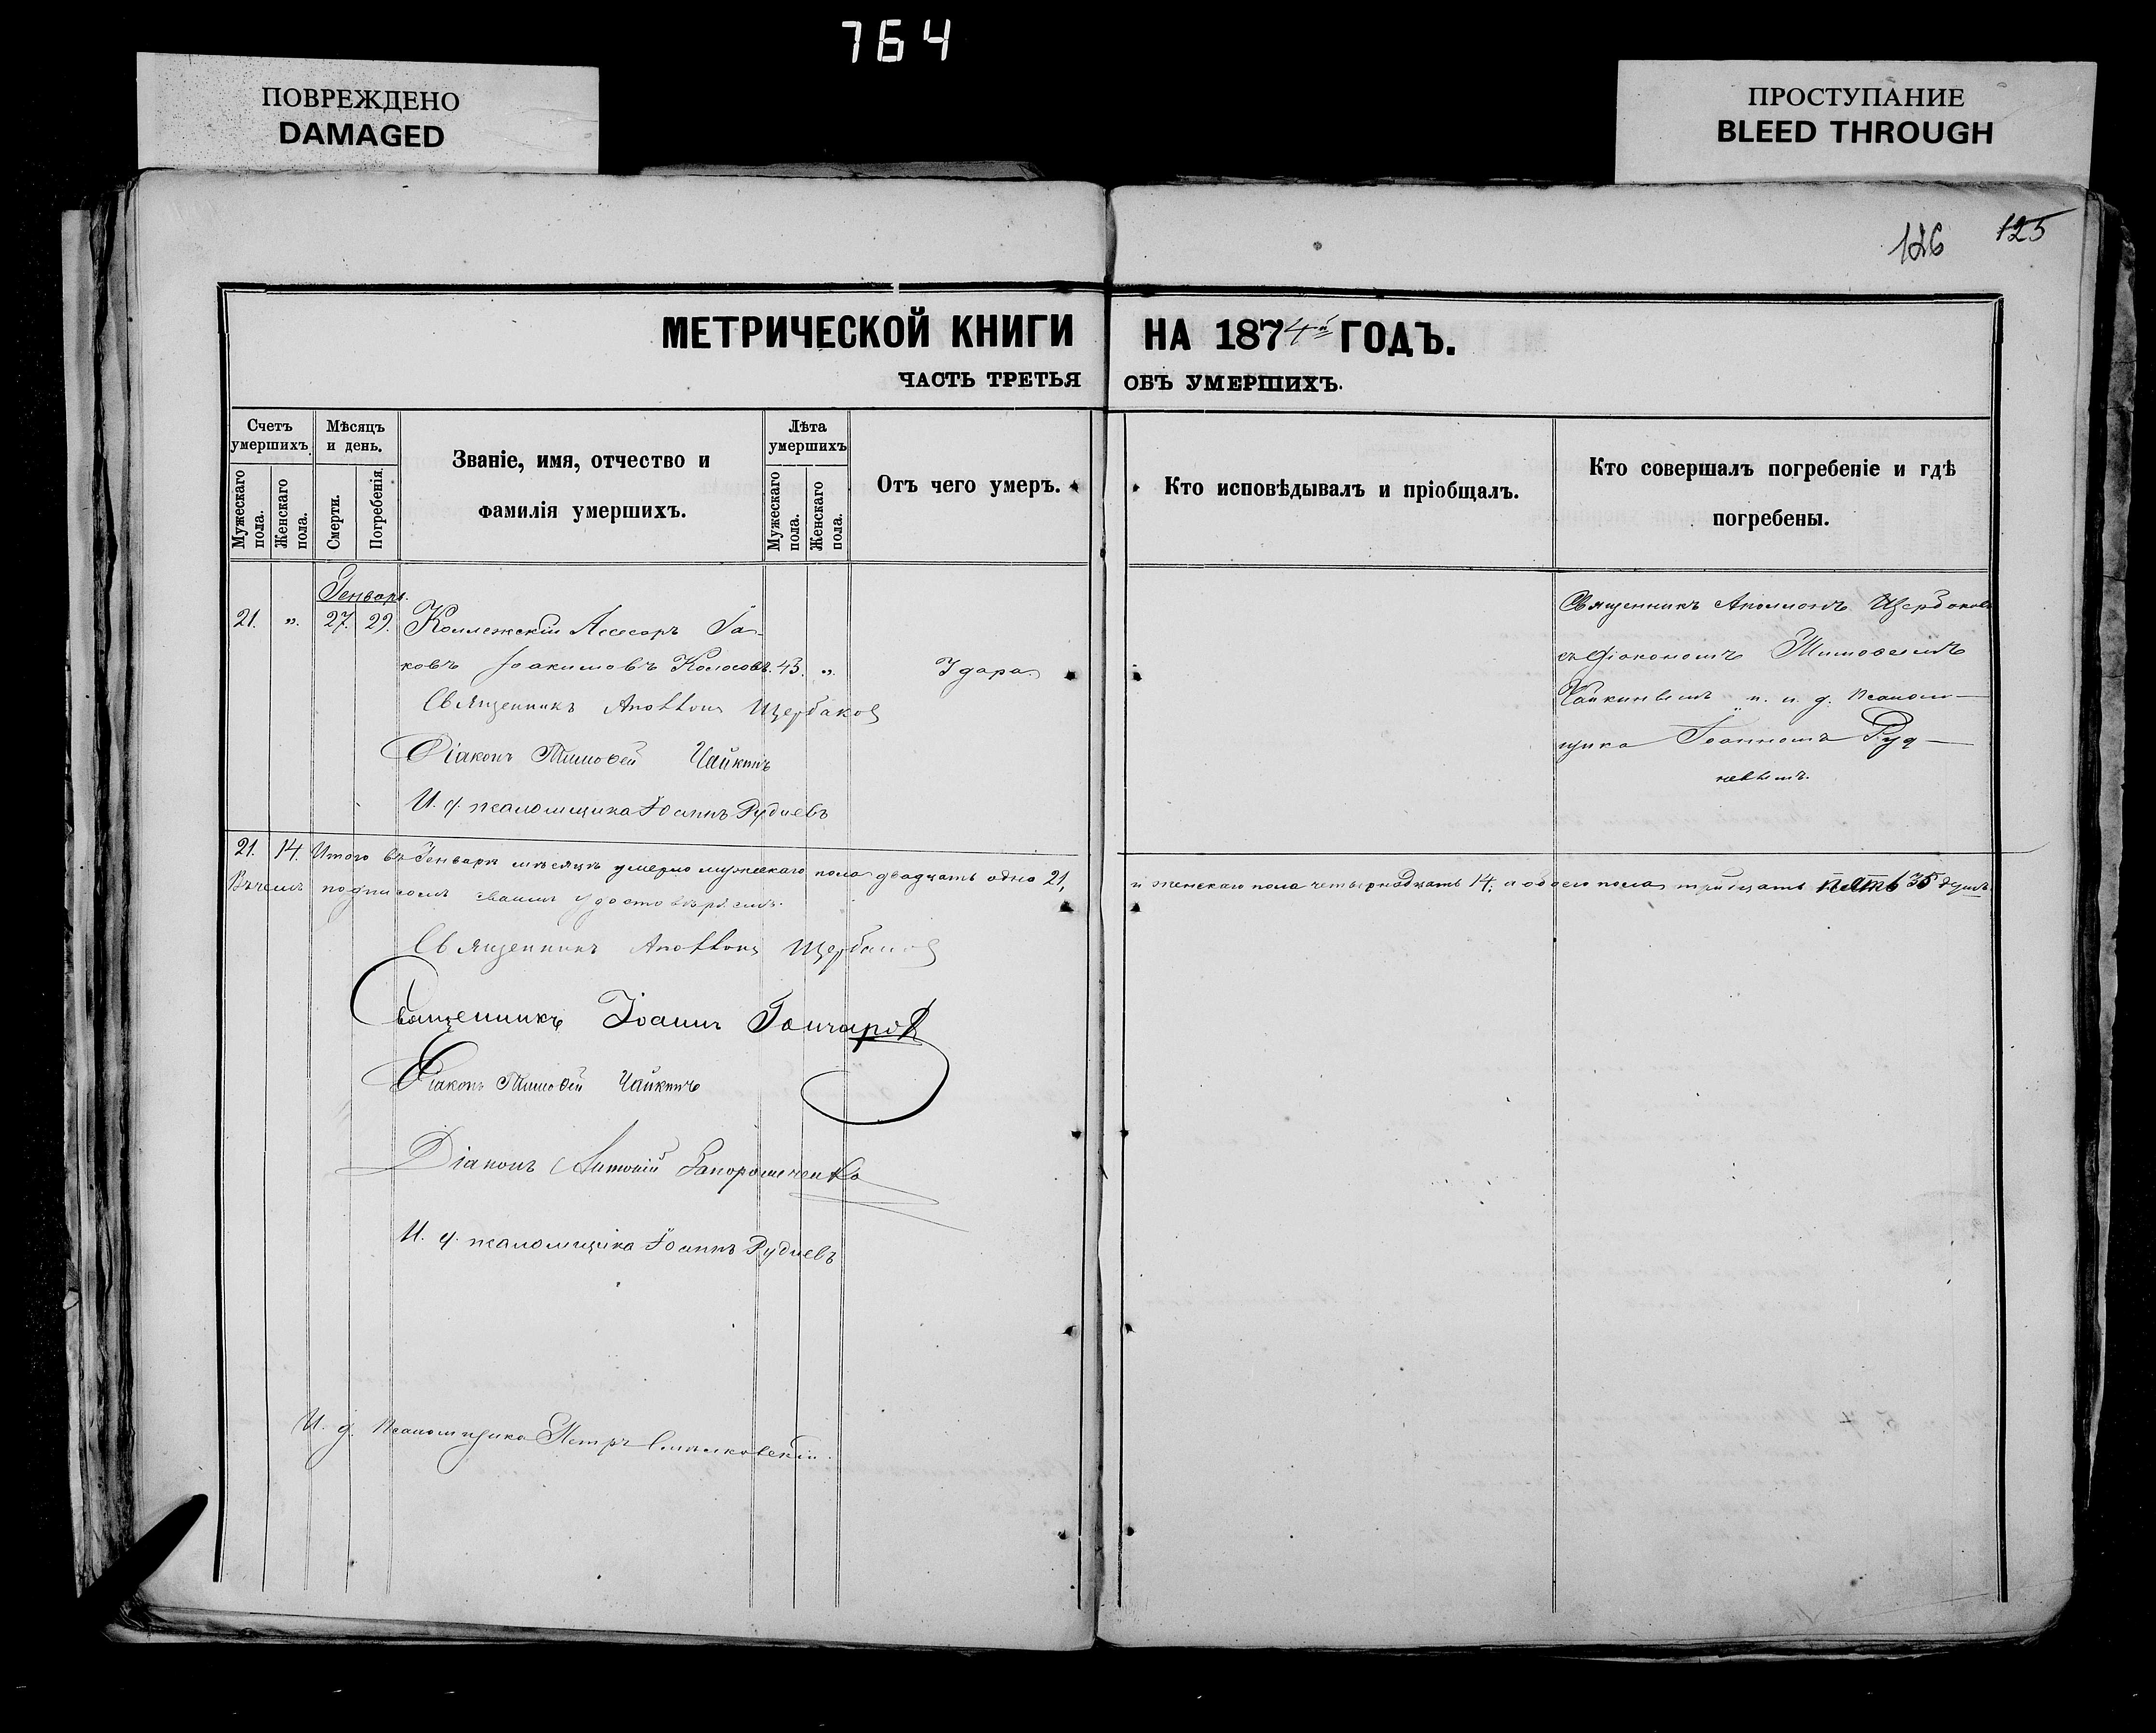 764
ПОВРЕЖДЕНО
DAMAGED
ПРОСТУПАНИЕ
BLEED THROUGH
126 125
МЕТРИЧЕСКОЙ КНИГИ НА 1874й ГОДЪ.
ЧАСТЬ ТРЕТЬЯ ОБЪ УМЕРШИХЪ.
Счетъ умершихъ.
Мужескаго пола.
Женскаго пола.
Мѣсяцъ и день.
Смерти.
Погребенія.
Званіе, имя, отчество и
фамилія умершихъ.
Лѣта умершихъ
Мужескаго пола.
Женскаго пола.
Отъ чего умеръ.
Кто исповѣдывалъ и пріобщалъ.
Кто совершалъ погребеніе и гдѣ
погребены.
Генварь.
21. „ 27. 29. Коллежскій Асесоръ Іа-
ковъ Іоакимовъ Колосовъ. 43. „ Удара
Священникъ Аполлонъ Щербаковъ
Діаконъ Тимофей Чайкинъ
И. д. псаломщика Іоаннъ Рудневъ
Священникъ Аполлонъ Щербаковъ
съ діакономъ Тимофеемъ
Чайкинымъ и и. д. псалом-
щика Іоанномъ Руд-
невымъ.
21. 14. Итого въ Генварѣ мѣсяцѣ умерло мужескаго пола двадцать одно 21, и женскаго пола четырнадцать 14, а обоего пола тридцать пять 35 душъ
Въ чемъ подписомъ своимъ удостовѣряемъ.
Священникъ Аполлонъ Щербаковъ
Священникъ Іоаннъ Гончаровъ
Діаконъ Тимофей Чайкинъ
Діаконъ Антоній Запорошченко
И. д. псаломщика Іоаннъ Рудневъ
И. д. Псаломщика Петръ